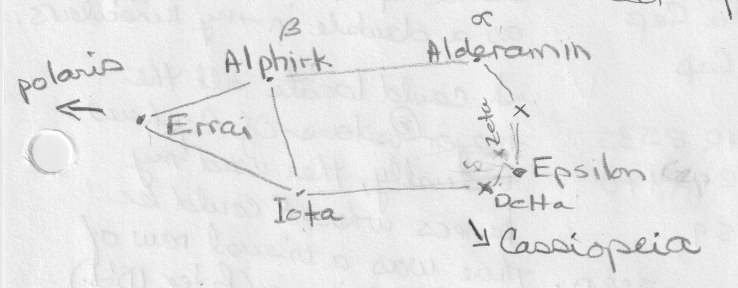 β
α
Alphirk
Alderamin
polaris
Errai
x
zeta
x
Epsilon
x
Delta
Iota
Cassiopeia